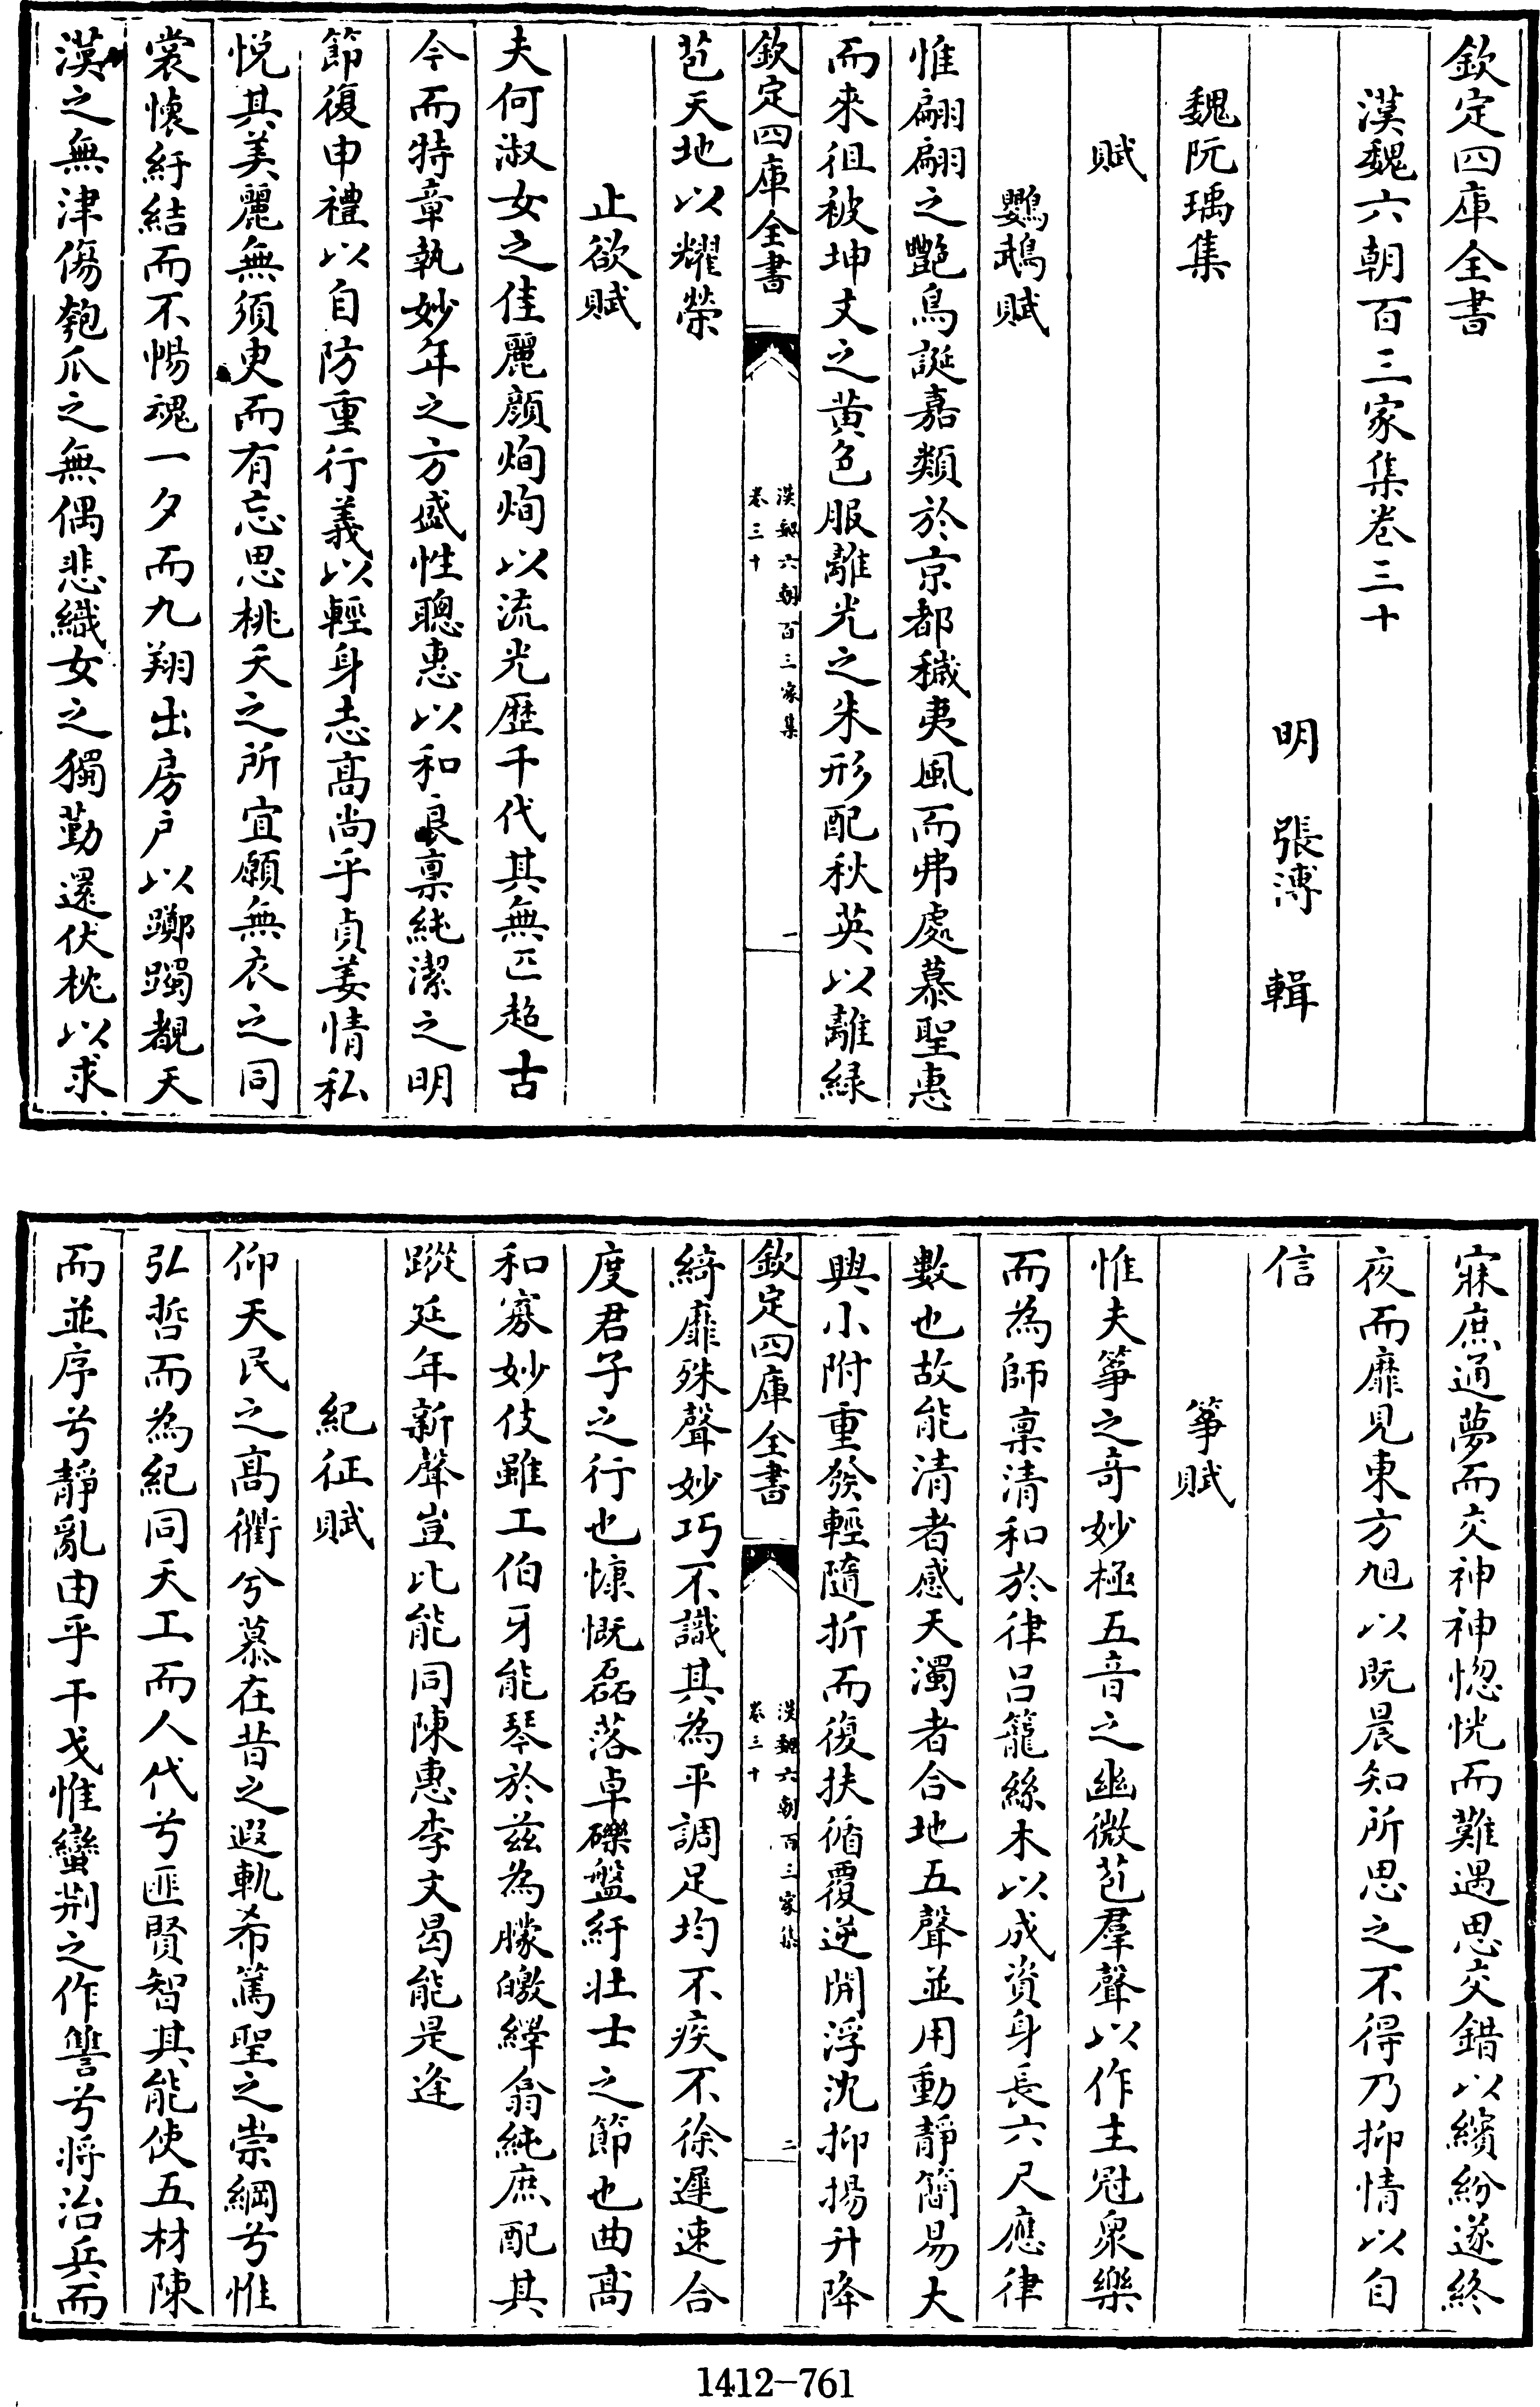 欽定四庫全書
漢魏六朝百三家集卷三十
明 張溥 輯
魏阮瑀集
賦
鸚鵡賦
惟翩翩之艷鳥誕嘉類於京都穢夷風而弗處慕聖惠
而來徂被坤文之黄色服離光之朱形配秋英以離緑
欽定四庫全書
漢魏六朝百三家集
卷三十
一
苞天地以耀榮
止欲賦
夫何淑女之佳麗顔炯炯以流光歴千代其無匹超古
今而特章執妙年之方盛性聰惠以和良稟純潔之明
節復申禮以自防重行義以輕身志高尚乎貞姜情私
悦其美麗無須臾而有忘思桃夭之所宜願無衣之同
裳懐紆結而不暢魂一夕而九翔出房户以躑躅覩天
漢之無津傷匏瓜之無偶悲織女之獨勤還伏枕以求
寐庶通夢而交神神惚恍而難遇思交錯以繽紛遂終
夜而靡見東方旭以既晨知所思之不得乃抑情以自
信
箏賦
惟夫箏之奇妙極五音之幽微苞羣聲以作主冠衆樂
而為師稟清和於律吕籠絲木以成資身長六尺應律
數也故能清者感天濁者合地五聲並用動靜簡易大
興小附重發輕隨折而復扶循覆逆開浮沈抑揚升降
欽定四庫全書
漢魏六朝百三家集
卷三十
二
綺靡殊聲妙巧不識其為平調足均不疾不徐遲速合
度君子之行也慷慨磊落卓礫盤紆壮士之節也曲高
和寡妙伎雖工伯牙能琴於兹為朦皦繹翕純庶配其
蹤延年新聲豈比能同陳惠李文曷能是逢
紀征賦
仰天民之高衢兮慕在昔之遐軌希篤聖之崇綱兮惟
弘哲而為紀同天工而人代兮匪賢智其能使五材陳
而並序兮靜亂由乎干戈惟蠻荆之作讐兮将治兵而
1412-761